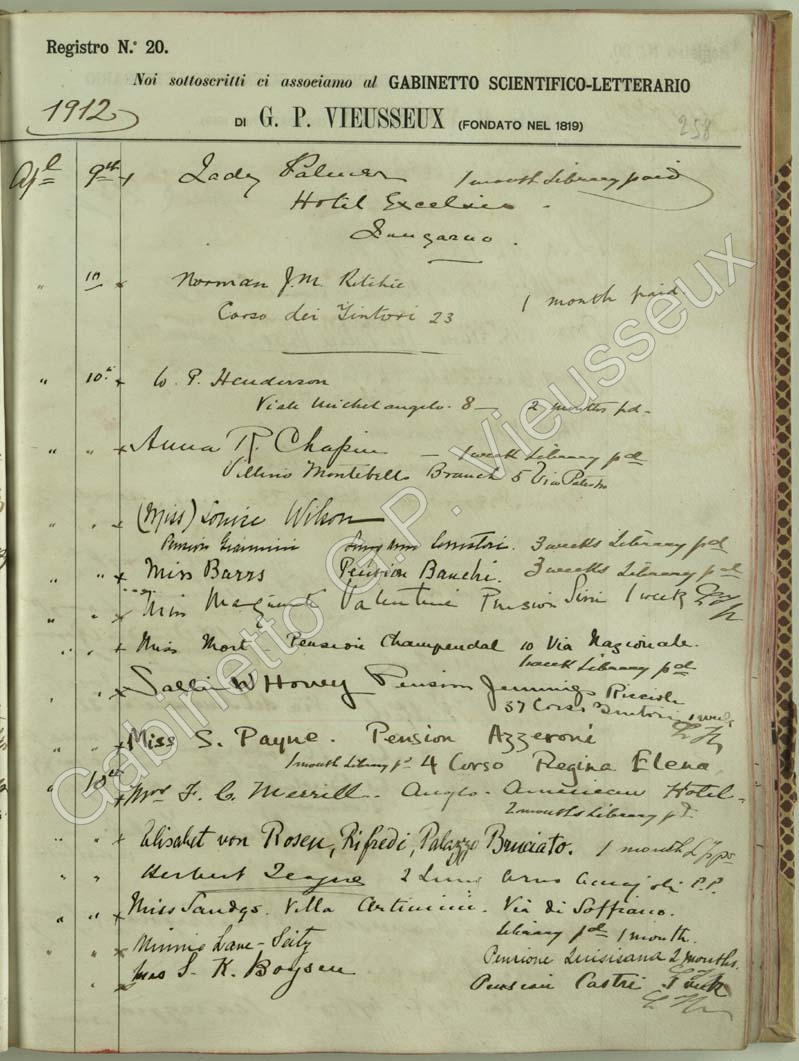 Registro N.º 20.
Noi sottoscritti ci associamo al GABINETTO SCIENTIFICO-LETTERARIO
1912
DI G. P. VIEUSSEUX (FONDATO NEL 1819)
258
Apl 9th x Lady Palmer 1 month Library paid
Hotel Excelsior.
Lungarno.
" 10 x Norman J.M. Ritchie
Corso dei Tintori 23 1 month paid
" 10th x W. P. Henderson
Viale Michelangelo. 8 — 2 months pd-
" " x Anna R. Chapin — 1 week Library pd
Villino Montebello Branch 5 Via Palestro
" " x (Miss) Louise Wilson
Pension Giannini Lung'arno 3 weeks Library pd
" " x Miss Barrs Pension Banchi. 3 weeks Library pd
" " Miss Valentine Pension Simi 1 week
" " x Miss Mort - Pension Champendal 10 Via Nazionale.
1 week Library pd
" x Sallie W Hovey Pension Jennings Riccioli
37 Corso Tintori 1 week
" x Miss S. Payne. Pension Azzeroni
1 month Library pd 4 Corso Regina Elena
" 10th x Mrs F. C. Merrill - Anglo-American Hotel-
2 months Library pd.
" " Elisabet von Rosen, Rifredi, Palazzo Bruciato. 1 month
" " Herbert 2 Lung Arno P.P.
" " x Miss Villa Via di Soffiano.
Library pd 1 month.
" " x Minnie Lane- Pensione Quisisana 2 months.
" x S. K. Boysen Pension Castri 1 week
Gabinetto G.P. Vieusseux